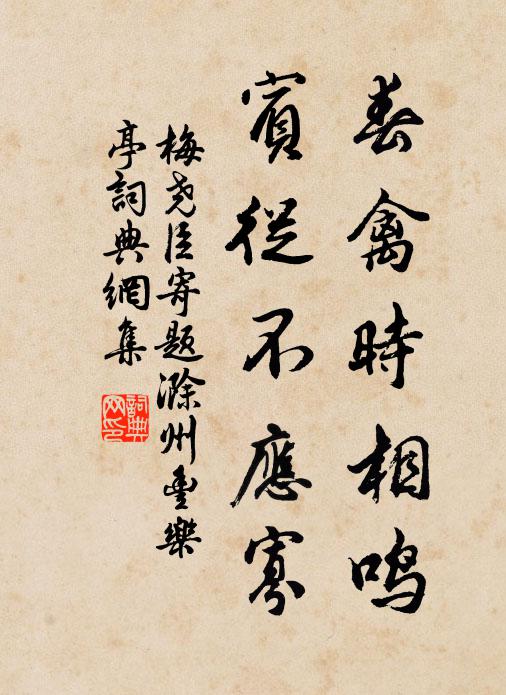 春禽時相鳴
賓從不應寡
梅尧臣寄题滁州豊樂
亭詞典網集
詞典
网印